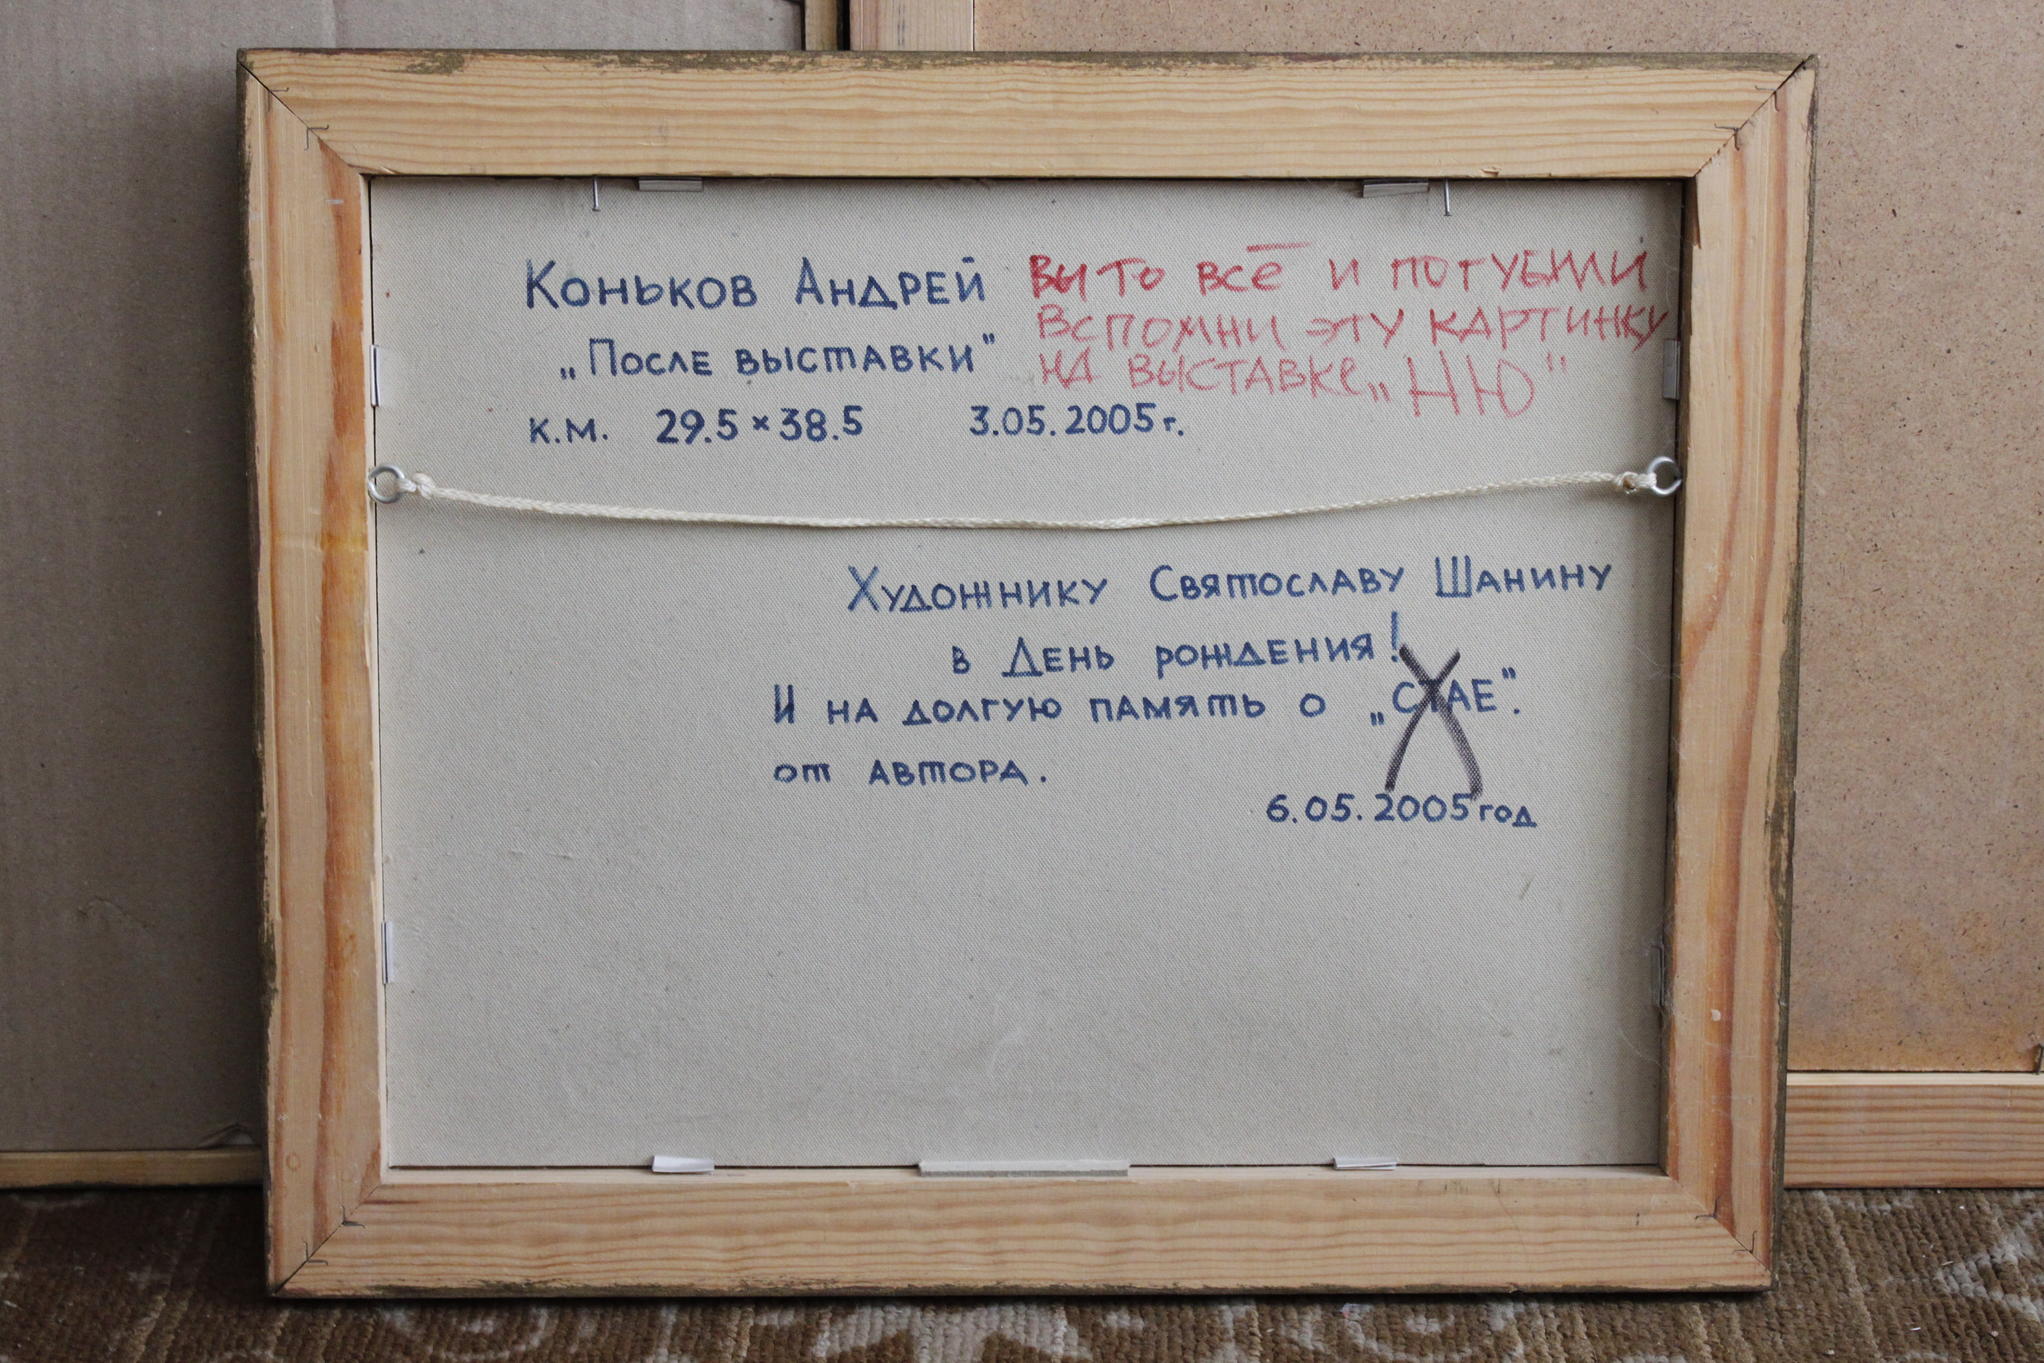 Коньков Андрей
„После выставки"
к.м. 29.5 × 38.5 3.05.2005 г.
Вы то всё и погубили
вспомни эту картинку
на выставке „НЮ"
Художнику Святославу Шанину
в День рождения!
И на долгую память о „СТАЕ".
от автора.
6.05.2005 год